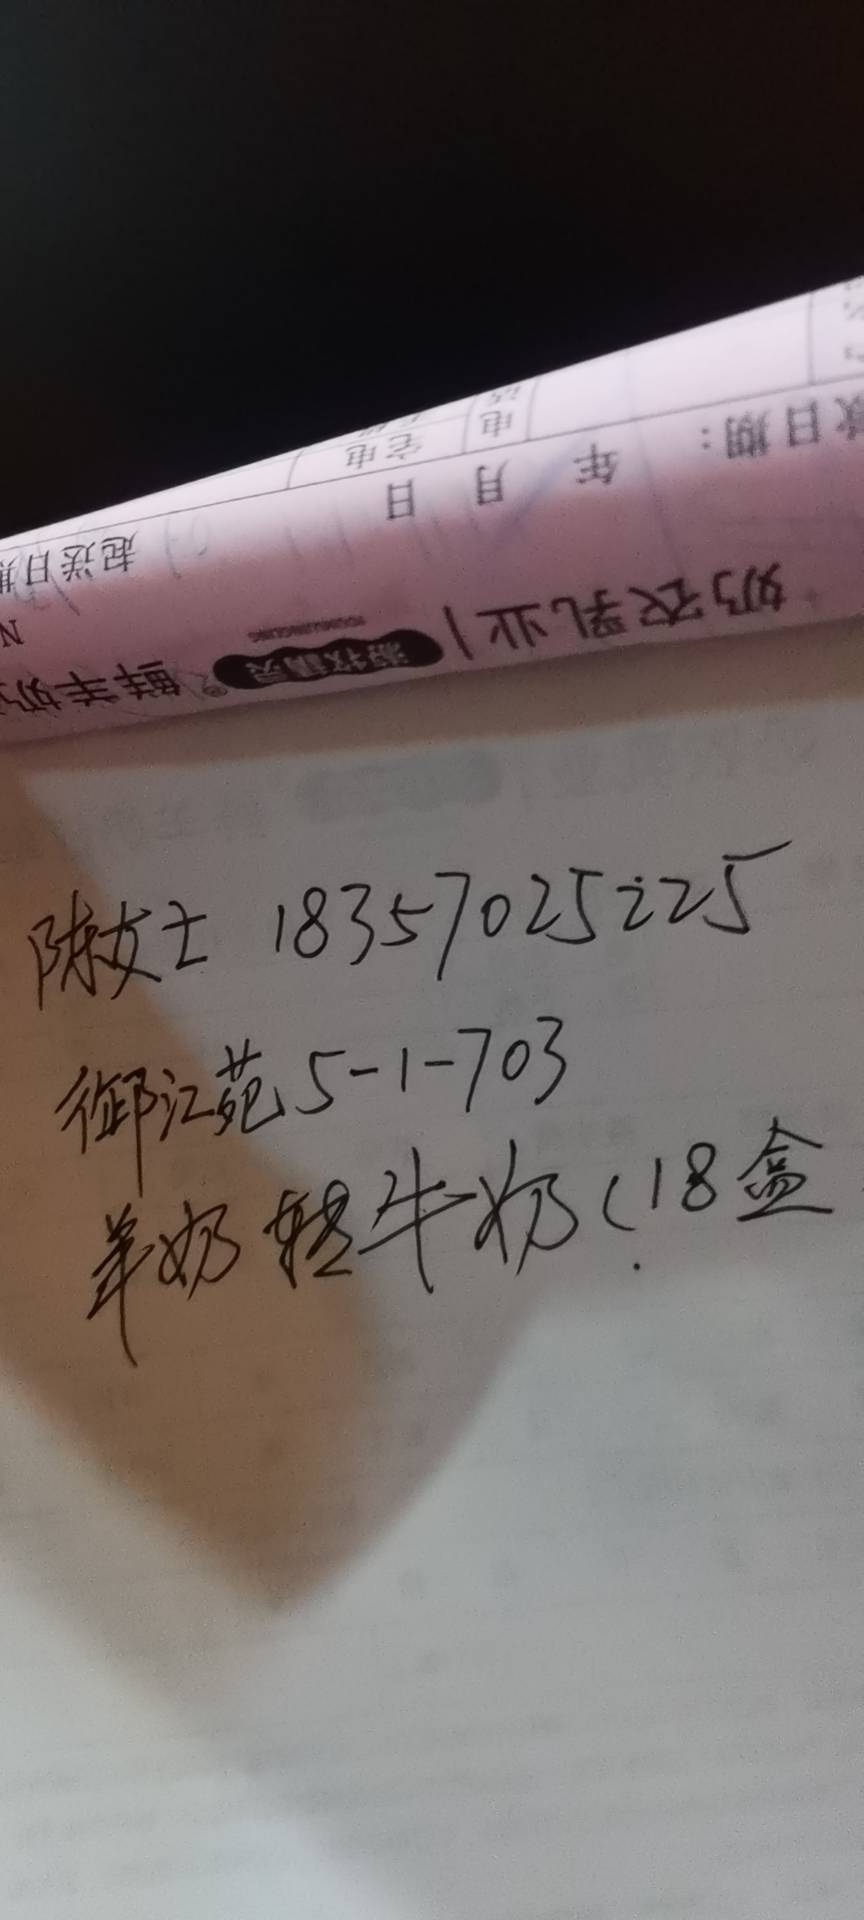 电
电
宅电
款日期： 年 月 日
起送日期
奶农乳业 | 鲜羊奶
YOUMULINGLING
N
陈女士 18357025225
御江苑 5-1-703
羊奶转牛奶（18盒